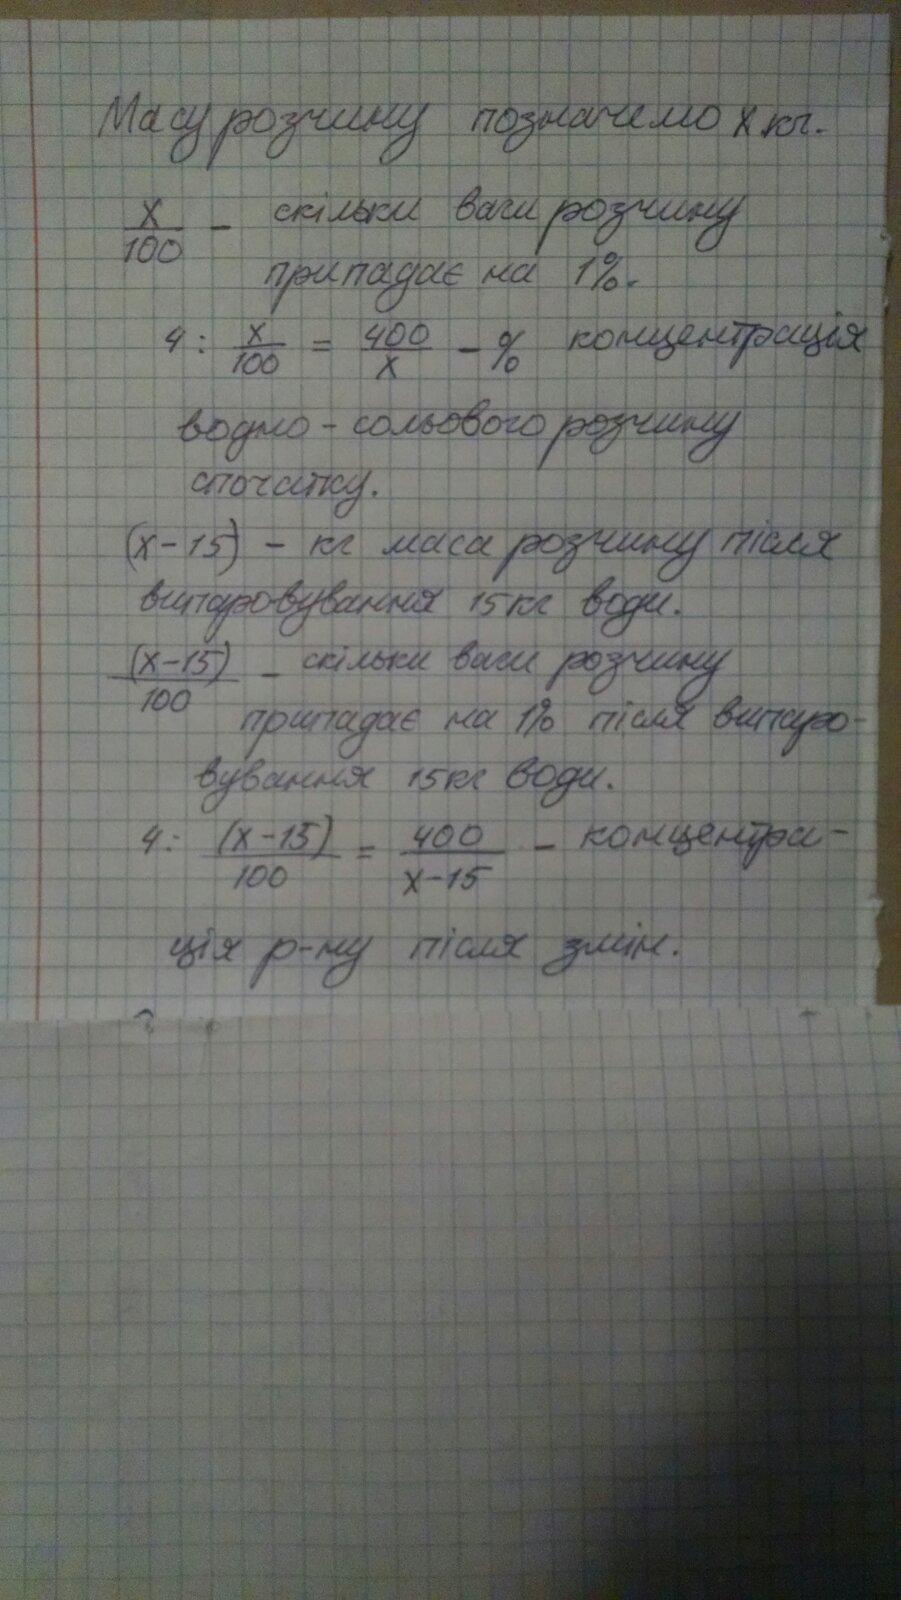 Масу розчину позначемо x кг.
x/100 - скільки ваги розчину
припадає на 1%.
4 : x/100 = 400/x - % концентрація
водно-сольового розчину
спочатку.
(x-15) - кг маса розчину після
випаровування 15кг води.
(x-15)/100 - скільки ваги розчину
припадає на 1% після випаро-
вування 15кг води.
4: (x-15)/100 = 400/x-15 - концентра-
ція р-ну після змін.